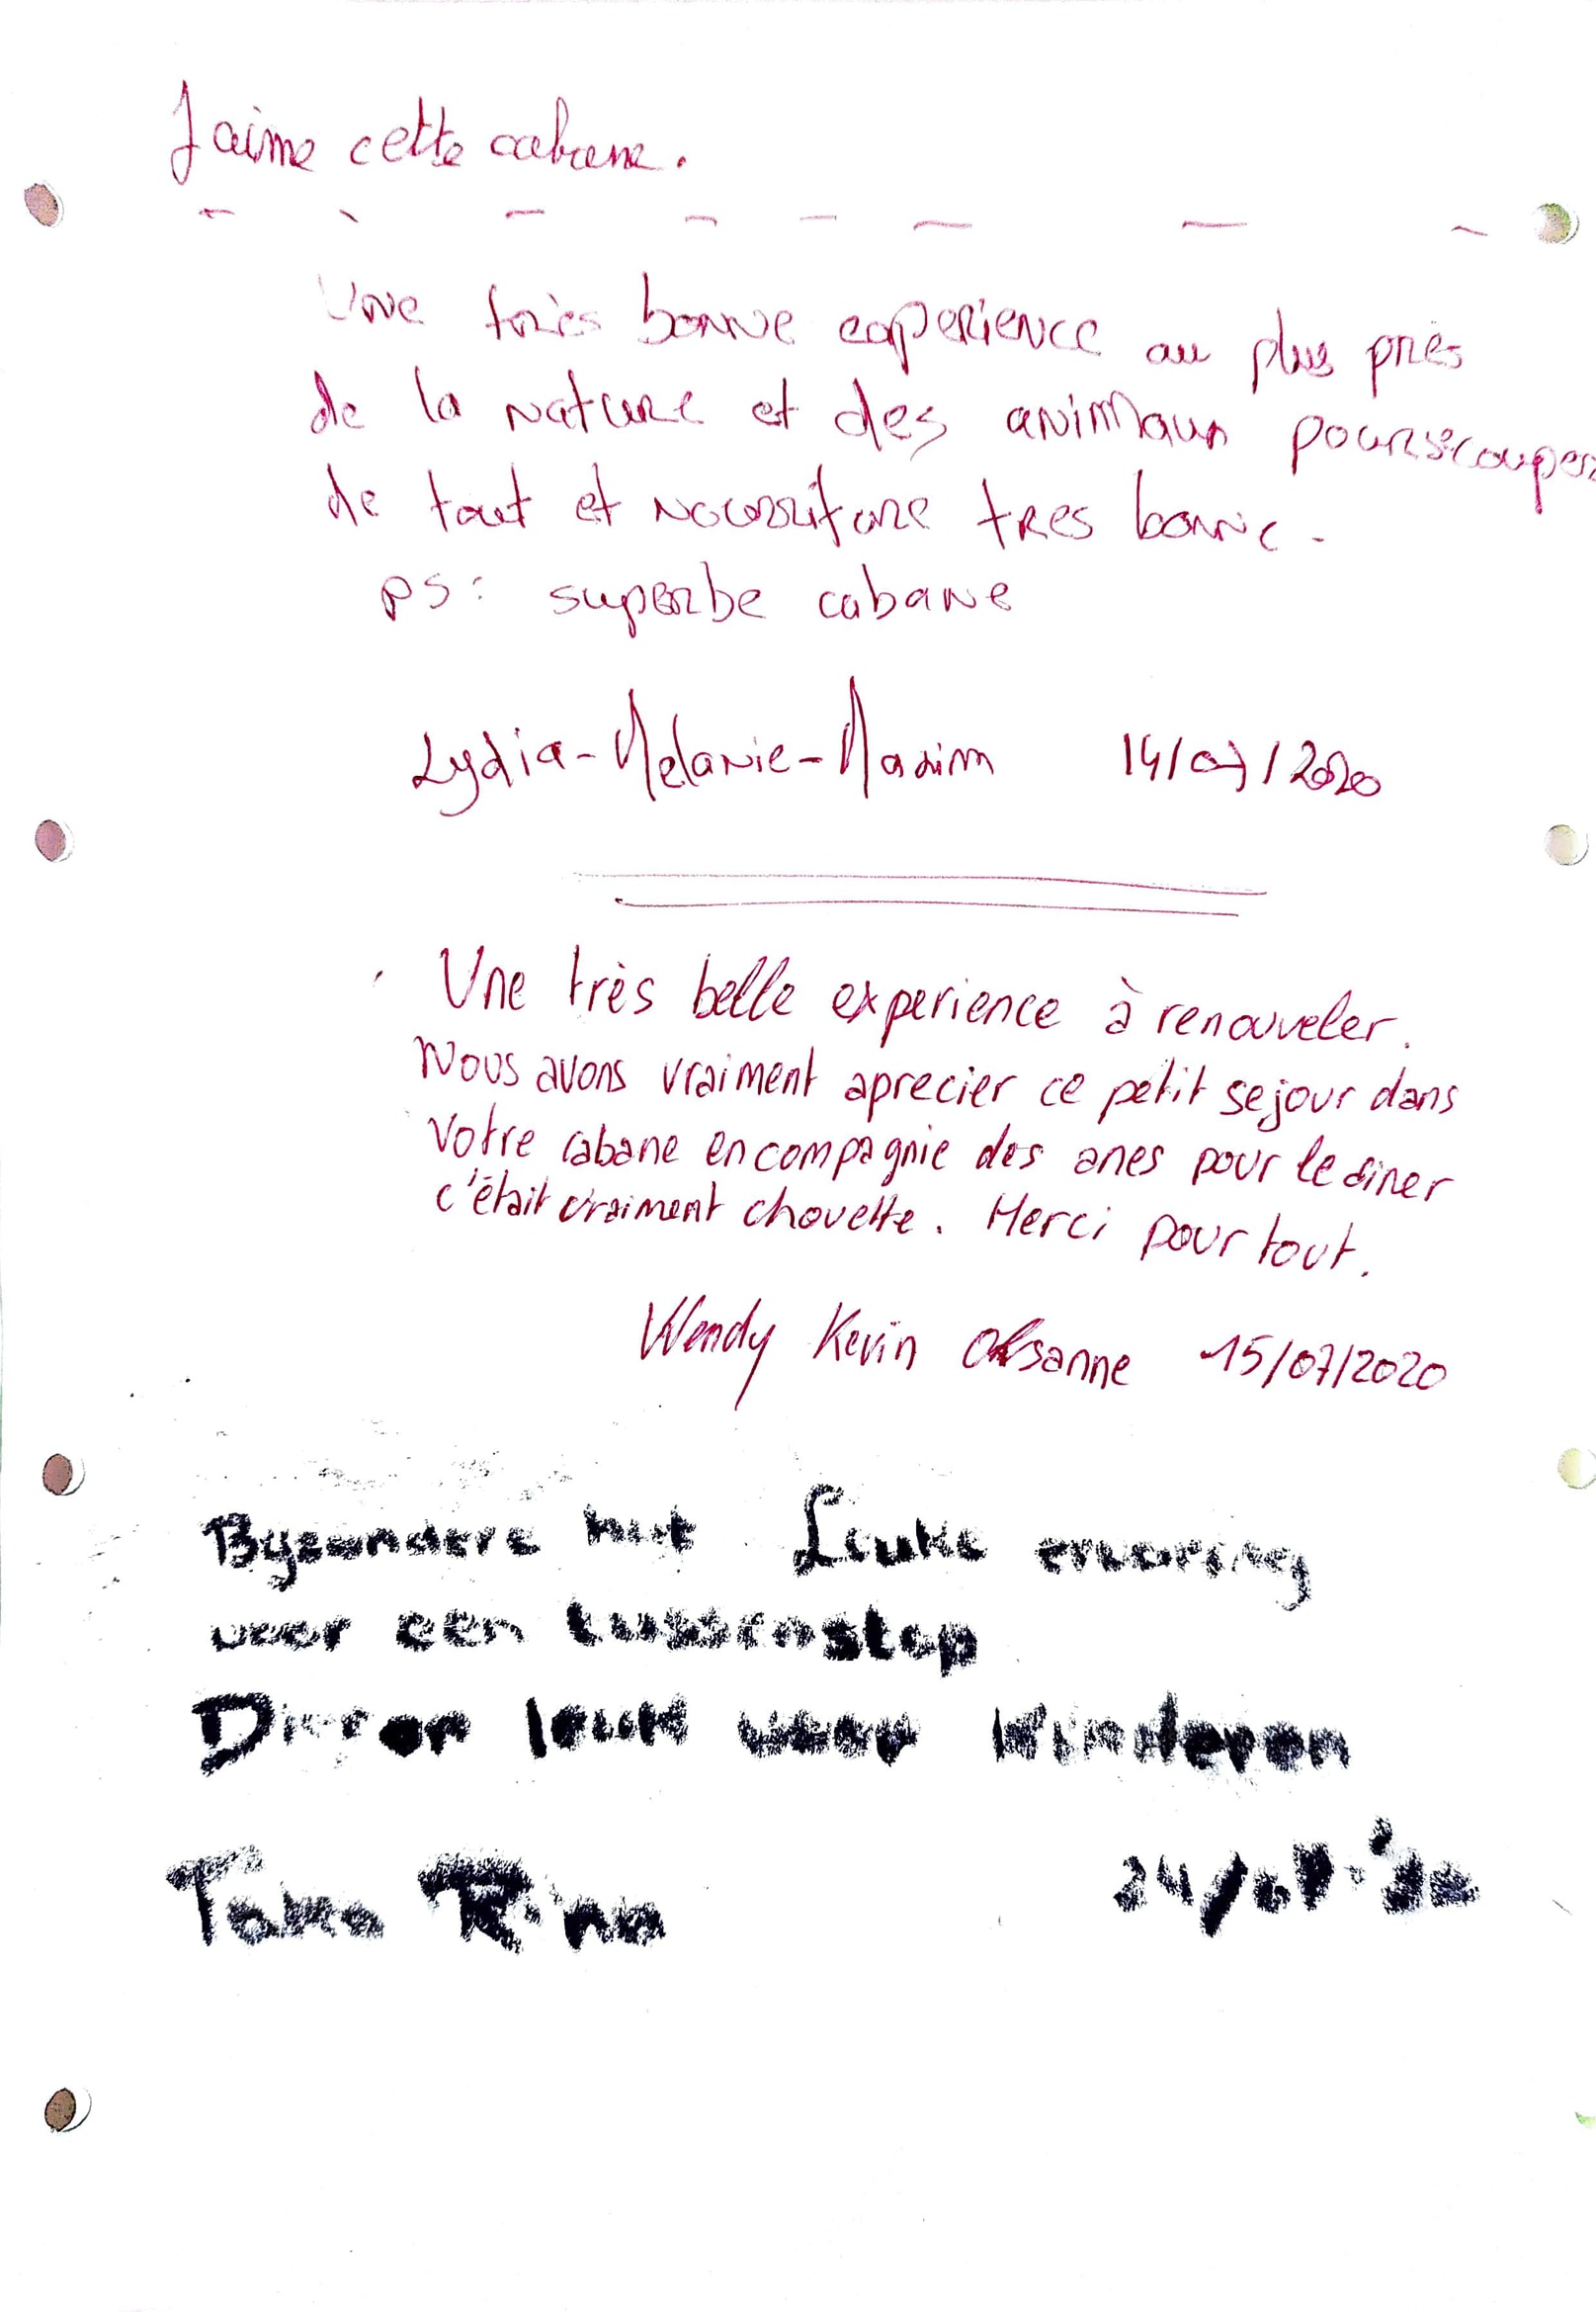 J'aime cette cabane.
Une très bonne experience au plus près
de la nature et des animaux pour se couper
de tout et nourriture tres bonne.
PS: superbe cabane
Lydia-Melanie-Maxim 14/07/2020
Une très belle experience à renouveler.
Nous avons vraiment aprecier ce petit sejour dans
votre cabane en compagnie des anes pour le diner
c'était vraiment chouette. Merci pour tout.
Wendy Kevin 15/07/2020
Byzondere hut Leuke ervaring
voor een tussenstop
Dieren leuk voor kinderen
Rina 24/07-'20